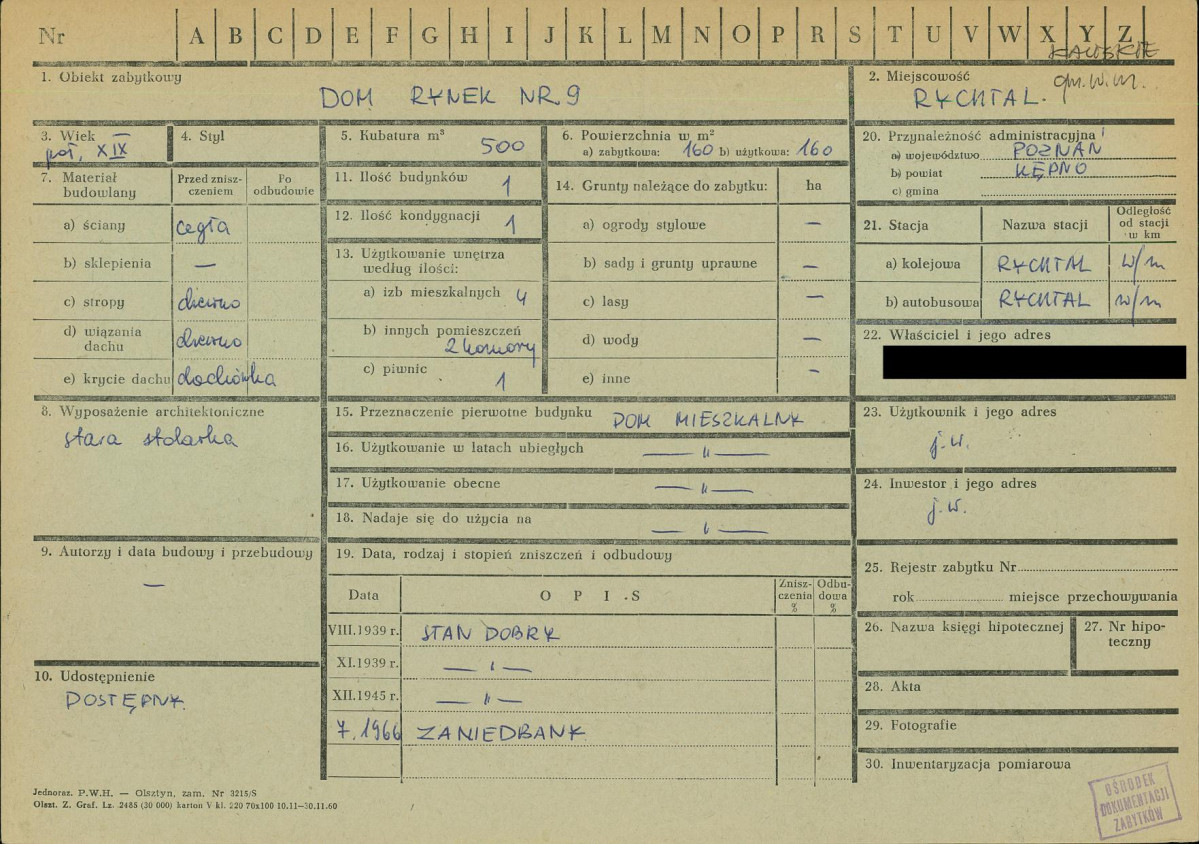 Nr A B C D E F G H I J K L M N O P R S T U V W X Y Z
KALISKIE
1. Obiekt zabytkowy
DOM RYNEK NR. 9
2. Miejscowość
gm. w. m.
RYCHTAL.
3. Wiek
poł. XIX
4. Styl
5. Kubatura m³
500
6. Powierzchnia w m²
a) zabytkowa: 160 b) użytkowa: 160
20. Przynależność administracyjna
a) województwo POZNAŃ
b) powiat KĘPNO
c) gmina
7. Materiał budowlany
Przed zniszczeniem
Po odbudowie
a) ściany cegła
b) sklepienia —
c) stropy drewno
d) wiązania dachu drewno
e) krycie dachu dachówka
11. Ilość budynków 1
12. Ilość kondygnacji 1
13. Użytkowanie wnętrza według ilości:
a) izb mieszkalnych 4
b) innych pomieszczeń
2 komory
c) piwnic 1
14. Grunty należące do zabytku: ha
a) ogrody stylowe —
b) sady i grunty uprawne —
c) lasy —
d) wody —
e) inne -
21. Stacja Nazwa stacji Odległość od stacji w km
a) kolejowa RYCHTAL w/m
b) autobusowa RYCHTAL w/m
22. Właściciel i jego adres
8. Wyposażenie architektoniczne
stara stolarka
15. Przeznaczenie pierwotne budynku DOM MIESZKALNY
16. Użytkowanie w latach ubiegłych — " —
17. Użytkowanie obecne — " —
18. Nadaje się do użycia na — " —
23. Użytkownik i jego adres
j.w.
24. Inwestor i jego adres
j.w.
9. Autorzy i data budowy i przebudowy
—
19. Data, rodzaj i stopień zniszczeń i odbudowy
Data OPIS Zniszczenia % Odbudowa %
VIII.1939 r. STAN DOBRY
XI.1939 r. — " —
XII.1945 r. — " —
7.1966 ZANIEDBANY
25. Rejestr zabytku Nr
rok miejsce przechowywania
26. Nazwa księgi hipotecznej
27. Nr hipoteczny
10. Udostępnienie
DOSTĘPNY.
28. Akta
29. Fotografie
30. Inwentaryzacja pomiarowa
Jednoraz. P.W.H. — Olsztyn, zam. Nr 3215/S
Olszt. Z. Graf. Lz. 2485 (30 000) karton V kl. 220 70x100 10.11—30.11.60
OŚRODEK
DOKUMENTACJI
ZABYTKÓW